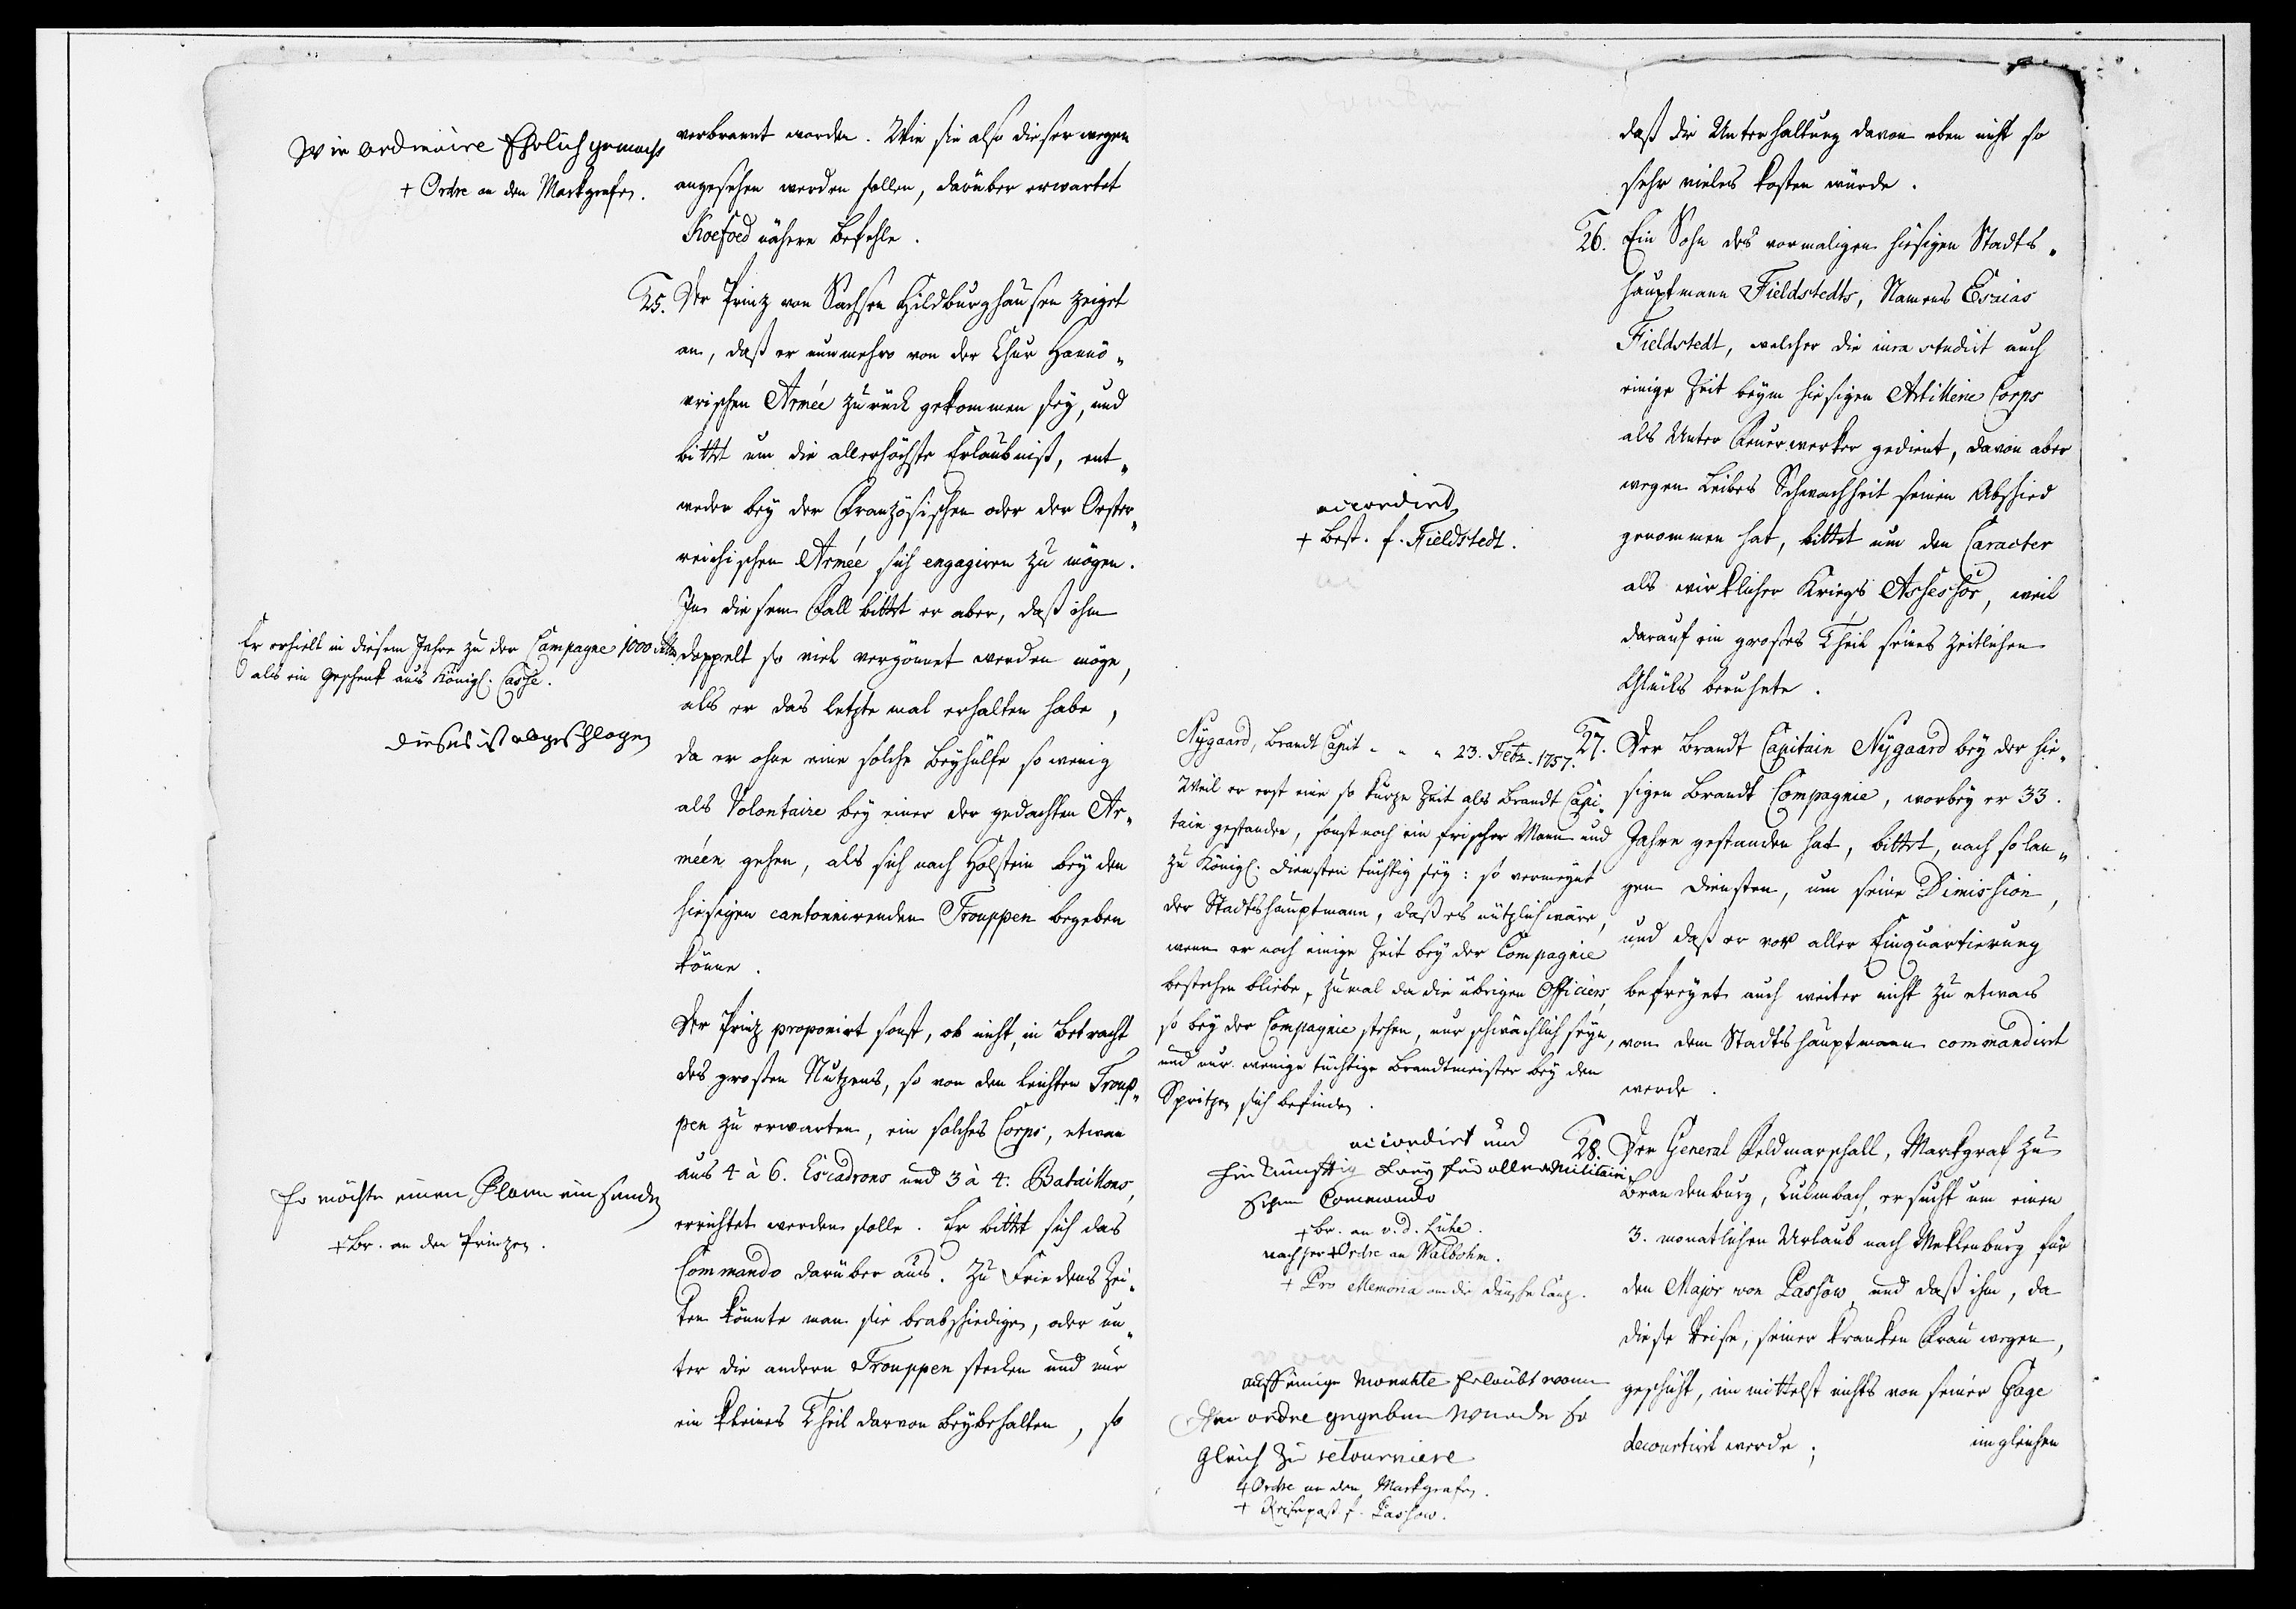 Wie ordinaire Ehrlich gemacht
+ Ordre an den Markgrafen.
verbrannt worden. Wie sie also dieserwegen
angesehen werden sollen, darüber erwartet
Koefoed nähere Befehle.
25. Der Prinz von Sachsen Hildburghausen zeiget
an, daß er nunmehro von der Chur Hannö„
vrischen Armée zurück gekommen sey, und
bittet um die allerhöchste Erlaubniß, ent„
weder bey der Französischen oder der Oester„
reichischen Armée sich engagiren zu mögen.
In diesem Fall bittet er aber, daß ihm
doppelt so viel vergönnet werden möge,
als er das letzte mal erhalten habe,
da er ohne eine solche Beyhülfe so wenig
als Volontaire bey einer der gedachten Ar„
méen gehen, als sich nach Holstein bey den
hiesigen cantonnirenden Trouppen begeben
könne.
Er erhielt in diesem Jahre zu der Campagne 1000
als ein Geschenk aus Königl. Casse.
dieses ist abgeschlagen
Der Prinz proponirt sonst, ob nicht, in Betracht
des großen Nutzens, so von den leichten Troup„
pen zu erwarten, ein solches Corps, etwan
aus 4 à 6. Escadrons und 3 à 4. Bataillons,
errichtet werden solle. Er bittet sich das
Commando darüber aus. Zu Friedens Zei„
ten könnte man sie beabschiedigen, oder un„
ter die andern Trouppen stecken und nur
ein kleines Theil darvon beybehalten, so
Er möchte einen Plann einsenden
+ Br. an den Prinzen.
daß die Unterhaltung davon eben nicht so
sehr vieles kosten würde.
26. Ein Sohn des vormaligen hiesigen Stadts„
hauptmann Fieldstedts, Namens Esaias
Fieldstedt, welcher die iura studirt auch
einige Zeit beym hiesigen Artillerie Corps
als Unter Feuerwerker gedient, davon aber
wegen Leibes Schwachheit seinen Abschied
genommen hat, bittet um den Caracter
als wirklicher Kriegs Assessor, weil
darauf ein großes Theil seines zeitlichen
Glücks beruhete.
accordirt
+ Best. f. Fieldstedt.
27. Der Brandt Capitain Nygaard bey der hie„
sigen Brandt Compagnie, worbey er 33.
Jahre gestanden hat, bittet, nach so lan„
gen Diensten, um seine Dimission,
und daß er von aller Einquartierung
befreyet auch weiter nicht zu etwas
von dem Stadtshauptmann commandirt
werde.
Nygaard, Brandt Capit - - - 23. Febr. 1757.
Weil er erst eine so kurze Zeit als Brandt Capi„
tain gestanden, sonst noch ein frischer Mann und
zu Königl. Diensten tüchtig sey: so vermeynt
der Stadtshauptmann, daß es nützlich wäre,
wenn er noch einige Zeit bey der Compagnie
bestehen bliebe, zumal da die übrigen Officiers,
so bey der Compagnie stehen, nur schwächlich seyn,
und nur wenige tüchtige Brandtmeister bey den
Spritzen sich befinden.
accordirt und
hinkünfftig frey für allen Militairi
schen Commando
+ Br. an v. d. Lühe.
nachher + Ordre an Walbohm.
+ Pro Memoria an die dänsche Canz.
28. Der General Feldmarschall, Markgraf zu
Brandenburg, Culmbach, ersucht um einen
3. monatlichen Urlaub nach Meklenburg für
den Major von Passow, und daß ihm, da
diese Reise, seiner kranken Frau wegen,
geschieht, immittelst nichts von seiner Gage
decourtirt werde;
imgleichen
auff einige Monahte Erlaubt wann
Ihm ordre gegeben wurde so
gleich zu retourniere
+ Ordre an den Markgrafen.
+ Reisepaß f. Passow.